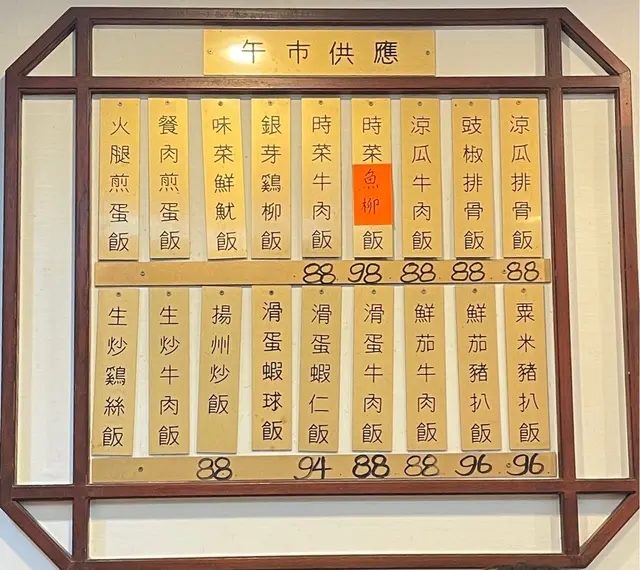 午市供應
火腿煎蛋飯
餐肉煎蛋飯
味菜鮮魷飯
銀芽鷄柳飯
時菜牛肉飯
時菜魚柳飯
涼瓜牛肉飯
豉椒排骨飯
涼瓜排骨飯
88 98 88 88 88
生炒鷄絲飯
生炒牛肉飯
揚州炒飯
滑蛋蝦球飯
滑蛋蝦仁飯
滑蛋牛肉飯
鮮茄牛肉飯
鮮茄豬扒飯
粟米豬扒飯
88 94 88 88 96 96